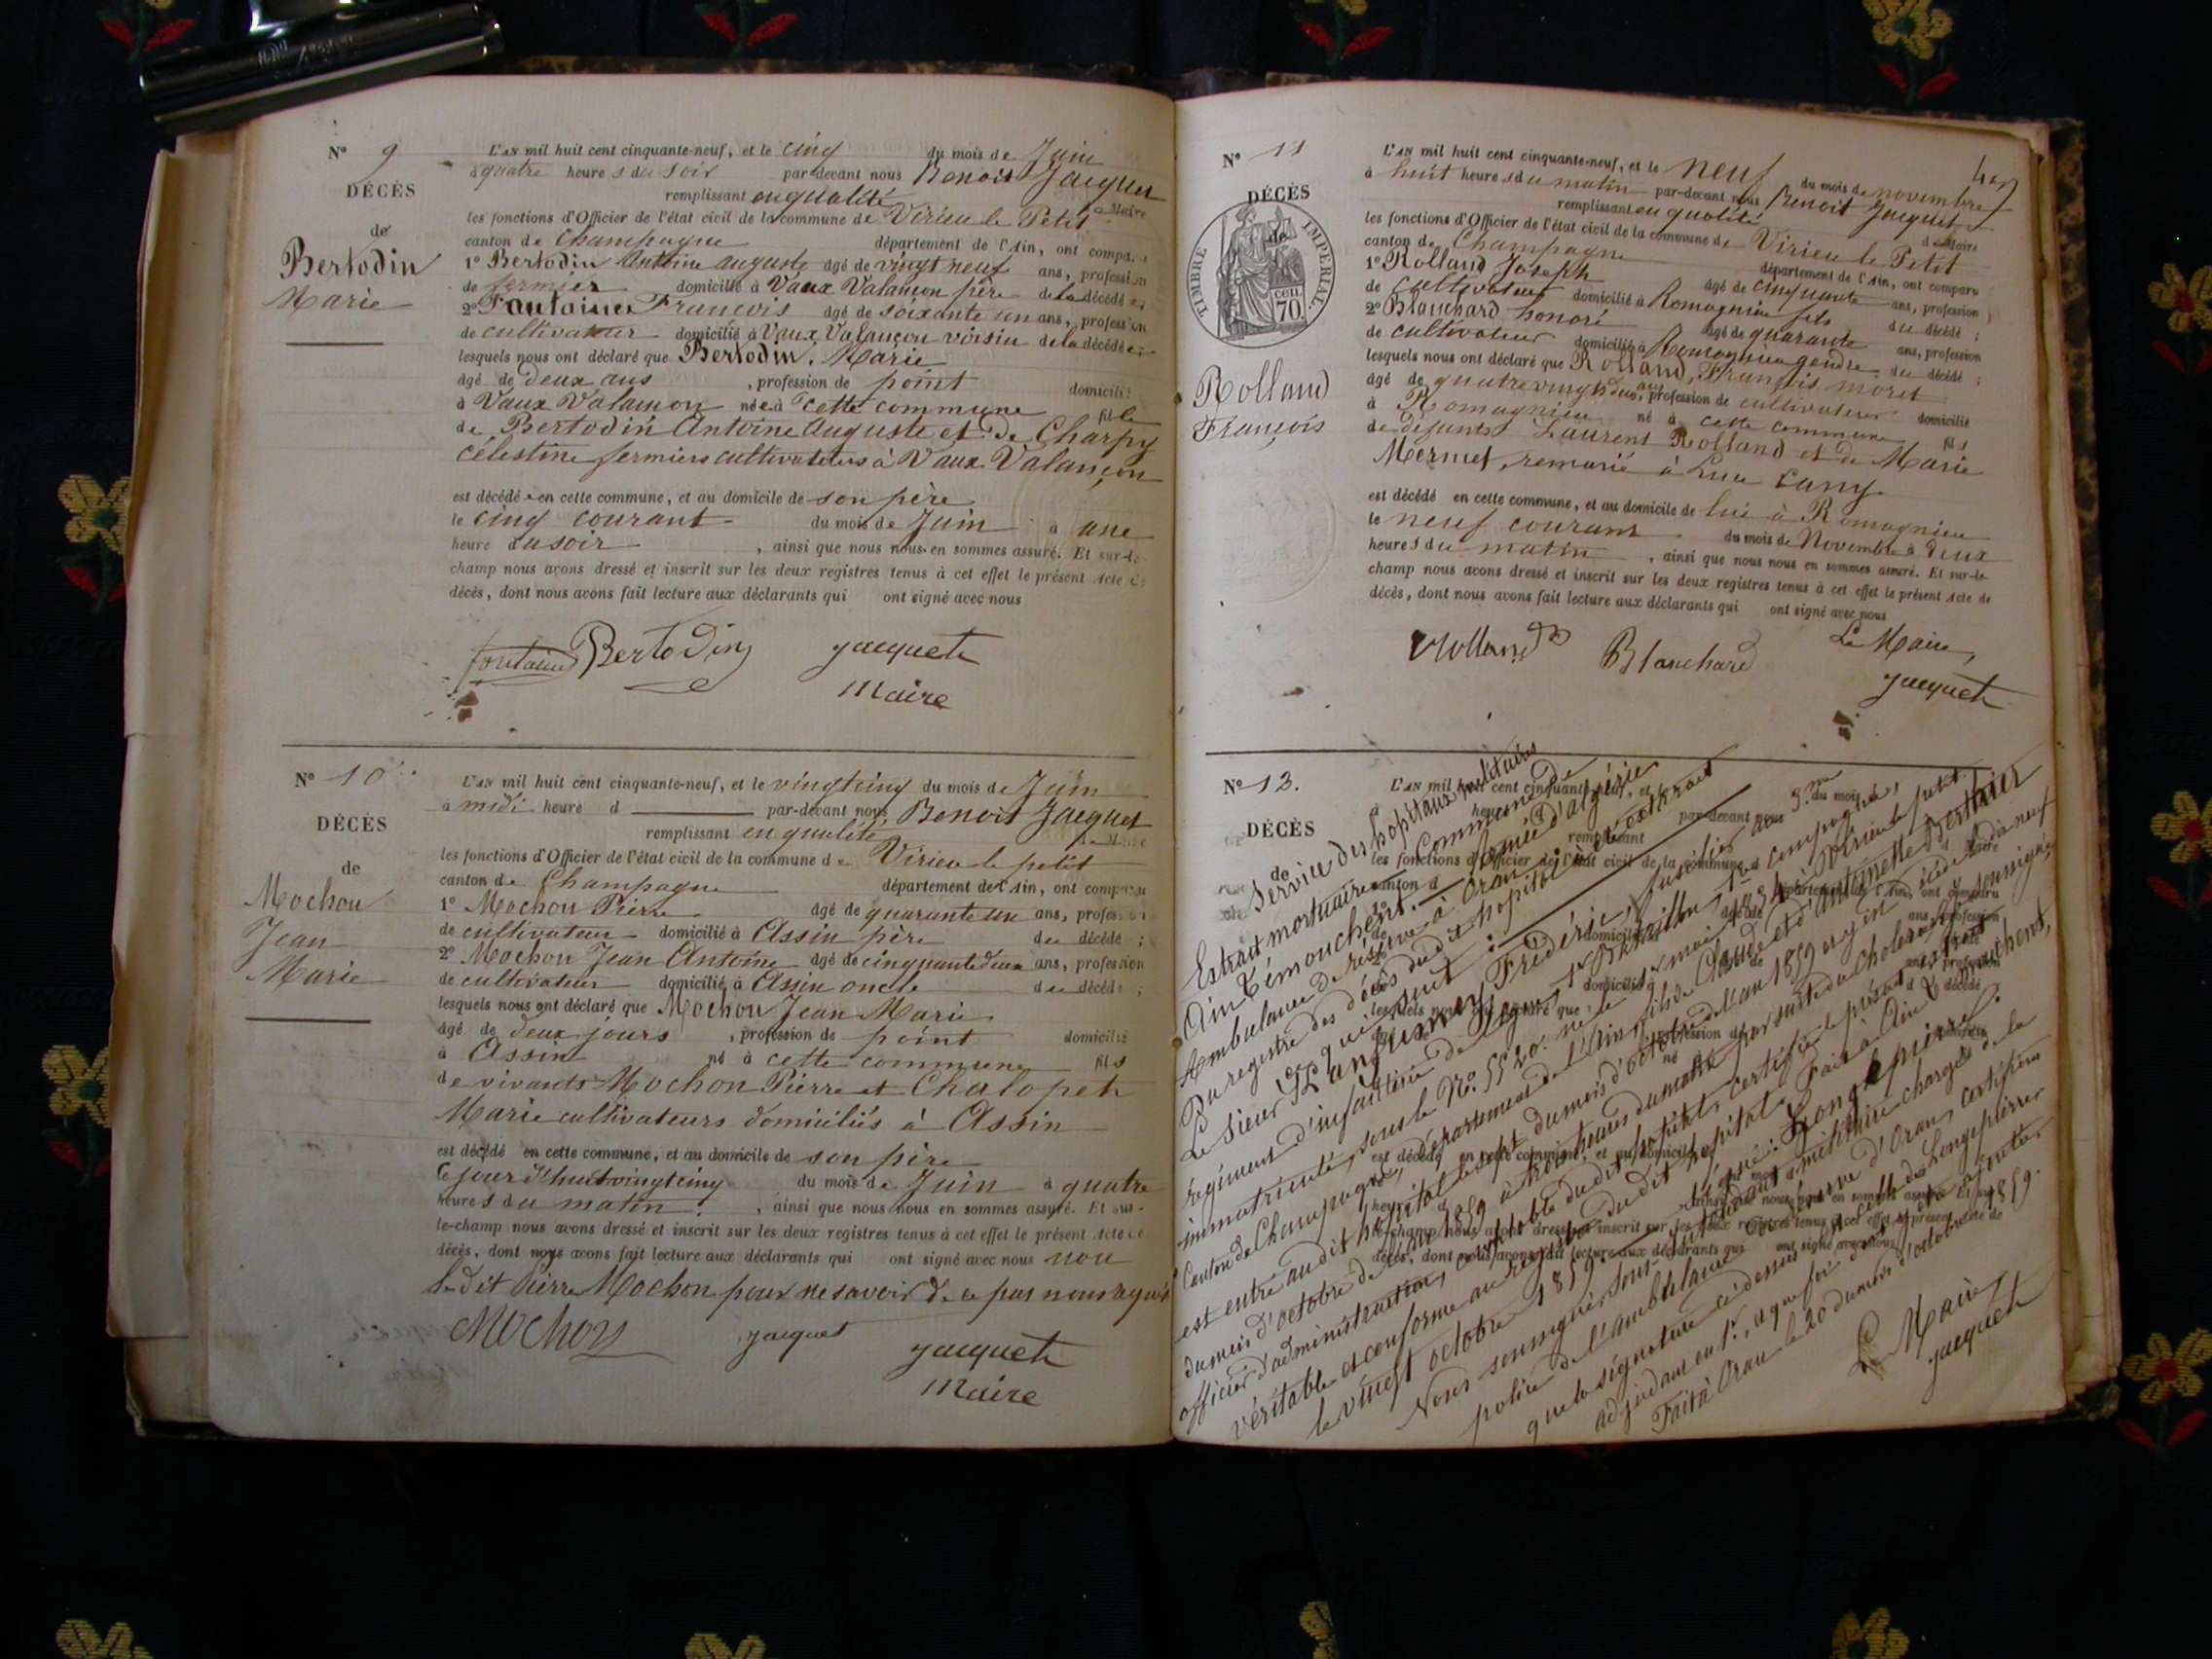 N° 9
DÉCÈS
de
Bertodin
Marie
L'AN mil huit cent cinquante-neuf, et le cinq du mois de Juin
à quatre heures du soir par-devant nous Benoit Jacquet
remplissant en qualité de Maire
les fonctions d'Officier de l'état civil de la commune de Virieu le Petit
canton de Champagne département de l'Ain, ont comparu
1° Bertodin Antoine auguste âgé de vingt neuf ans, profession
de fermier domicilié à Vaux Valançon père de la décédée
2° Fontaine Francois âgé de soixante un ans, profession
de cultivateur domicilié à Vaux Valançon voisin de la décédée
lesquels nous ont déclaré que Bertodin, Marie
âgé de deux ans , profession de point domicilié
à Vaux Valançon née à cette commune fille
de Bertodin Antoine Auguste et de Charpy
Célestine fermiers cultivateurs à Vaux Valançon
est décédée en cette commune, et au domicile de son père
le cinq courant du mois de Juin à une
heure du soir , ainsi que nous nous en sommes assuré. Et sur-le-
champ nous avons dressé et inscrit sur les deux registres tenus à cet effet le présent Acte de
décès, dont nous avons fait lecture aux déclarants qui ont signé avec nous
fontaine Bertodin Jacquet
Maire
N° 10
DÉCÈS
de
Mochon
Jean
Marie
L'AN mil huit cent cinquante-neuf, et le vingtcinq du mois de Juin
à midi heure d par-devant nous Benoit Jacquet
remplissant en qualité de Maire
les fonctions d'Officier de l'état civil de la commune de Virieu le petit
canton de Champagne département de l'Ain, ont comparu
1° Mochon Pierre âgé de quarante un ans, profession
de cultivateur domicilié à Assin père du décédé ;
2° Mochon Jean Antoine âgé de cinquante deux ans, profession
de cultivateur domicilié à Assin oncle du décédé ;
lesquels nous ont déclaré que Mochon Jean Marie
âgé de deux jours , profession de point domicilié
à Assin né à cette commune fils
de vivants Mochon Pierre et Chalopet
Marie cultivateurs domiciliés à Assin
est décédé en cette commune, et au domicile de son père
le jour d'hui vingtcinq du mois de Juin à quatre
heures du matin , ainsi que nous nous en sommes assuré. Et sur-
le-champ nous avons dressé et inscrit sur les deux registres tenus à cet effet le présent Acte de
décès, dont nous avons fait lecture aux déclarants qui ont signé avec nous non
le dit Pierre Mochon pour ne savoir de ce par nous requis
Mochon Jacquet Jacquet
Maire
N° 11
DÉCÈS
de
TIMBRE IMPÉRIAL
cen. 70.
Rolland
François
L'AN mil huit cent cinquante-neuf, et le neuf du mois de novembre
à huit heures du matin par-devant nous Benoit Jacquet
remplissant en qualité de Maire
les fonctions d'Officier de l'état civil de la commune de Virieu le Petit
canton de Champagne département de l'Ain, ont comparu
1° Rolland Joseph âgé de cinquante ans, profession
de cultivateur domicilié à Romagnieu fils du décédé ;
2° Blanchard honoré âgé de quarante ans, profession
de cultivateur domicilié à Romagnieu gendre du décédé ;
lesquels nous ont déclaré que Rolland, François moret
âgé de quatre vingt deux ans, profession de cultivateur domicilié
à Romagnieu né à cette commune fils
de défunts Laurent Rolland et de Marie
Mermet, remarié à
est décédé en cette commune, et au domicile de lui à Romagnieu
le neuf courant du mois de Novembre à deux
heures du matin , ainsi que nous nous en sommes assuré. Et sur-le-
champ nous avons dressé et inscrit sur les deux registres tenus à cet effet le présent Acte de
décès, dont nous avons fait lecture aux déclarants qui ont signé avec nous
Rolland Blanchard Le Maire,
Jacquet
N° 12.
DÉCÈS
de
Service des hôpitaux militaires
Extrait mortuaire Commune de
Ain Témouchent. armée d'algérie
Ambulance de réserve à Oran
Du registre des décès du dit hôpital a été extrait
ce qui suit :
Le Sieur Frédéric, fusilier au 3me
régiment d'infanterie de ligne, 1er Bataillon, 1re compagnie,
immatriculé, sous le N° 5520. né le 1er mai à Virieu le petit
Canton de Champagne, département de l'Ain, fils de Claude et d'Antoinette Berthier
est entré au dit hôpital le sept du mois d'octobre de l'an 1859 et y est décédé le dix neuf
du mois d'octobre de l'an 1859 à trois heures du matin par suite du Choléra
officier d'administration, comptable du dit hôpital, certifie le présent extrait
véritable et conforme au registre du dit hôpital. Fait à Ain Témouchent,
le vingt octobre 1859. Signé : Longepierre.
Nous soussigné, Sous-Intendant militaire chargé de la
police de l'ambulance de réserve d'Oran, certifions
que la signature ci dessus est celle de Longepierre
adjudant en 1er, et que foi doit y être ajoutée.
Fait à Oran le 20 du mois d'octobre 1859.
Le Maire,
Jacquet